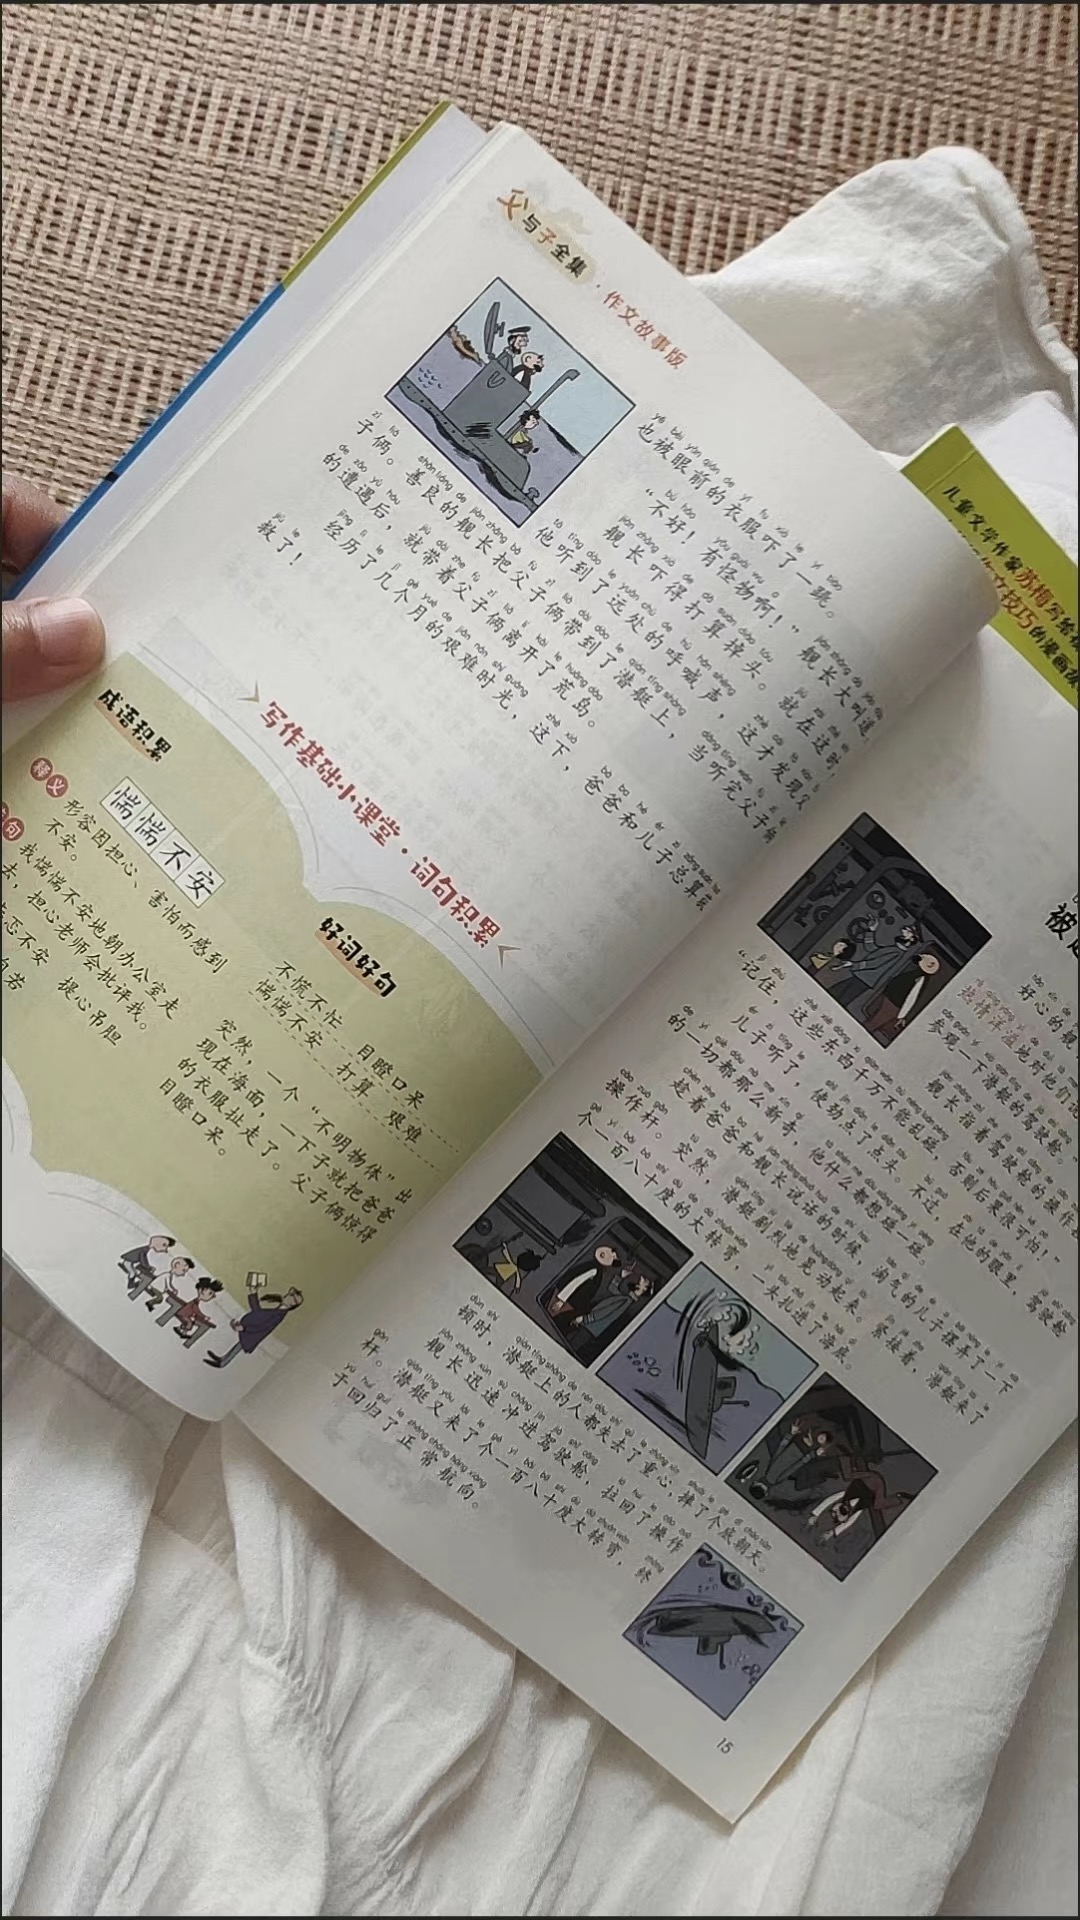 父与子全集·作文故事版
也被眼前的衣服吓了一跳。
“不好！有怪物啊！”舰长大叫道
舰长吓得打算掉头。就在这时，
他听到了远处的呼喊声，这才发现父
子俩。善良的舰长把父子俩带到了潜艇上，当听完父子俩
的遭遇后，就带着父子俩离开了荒岛。
经历了几个月的艰难时光，这下，爸爸和儿子总算获
救了！
写作基础小课堂·词句积累
成语积累
惴惴不安
释义
形容因担心、害怕而感到
不安。
句
我惴惴不安地朝办公室走
去，担心老师会批评我。
不安 提心吊胆
自若
好词好句
不慌不忙 目瞪口呆
惴惴不安 打算 艰难
突然，一个“不明物体”出
现在海面，一下子就把爸爸
的衣服扯走了。父子俩惊得
目瞪口呆。
儿童文学作家苏梅写给
作文技巧的漫画
被
好心的舰
热情洋溢地对他们说
参观一下潜艇的驾驶舱。
舰长指着驾驶舱的操作
“记住，这些东西千万不能乱碰，否则后果很可怕！”
儿子听了，使劲点了点头。不过，在他的眼里，驾驶舱
的一切都那么新奇，他什么都想碰一碰。
趁着爸爸和舰长说话的时候，淘气的儿子摆弄了一下
操作杆。突然，潜艇剧烈地晃动起来。紧接着，潜艇来了
个一百八十度的大转弯，一头扎进了海底。
顿时，潜艇上的人都失去了重心，摔了个底朝天。
舰长迅速冲进驾驶舱，拉回了操作
杆。潜艇又来了个一百八十度大转弯，终
于回归了正常航向。
15